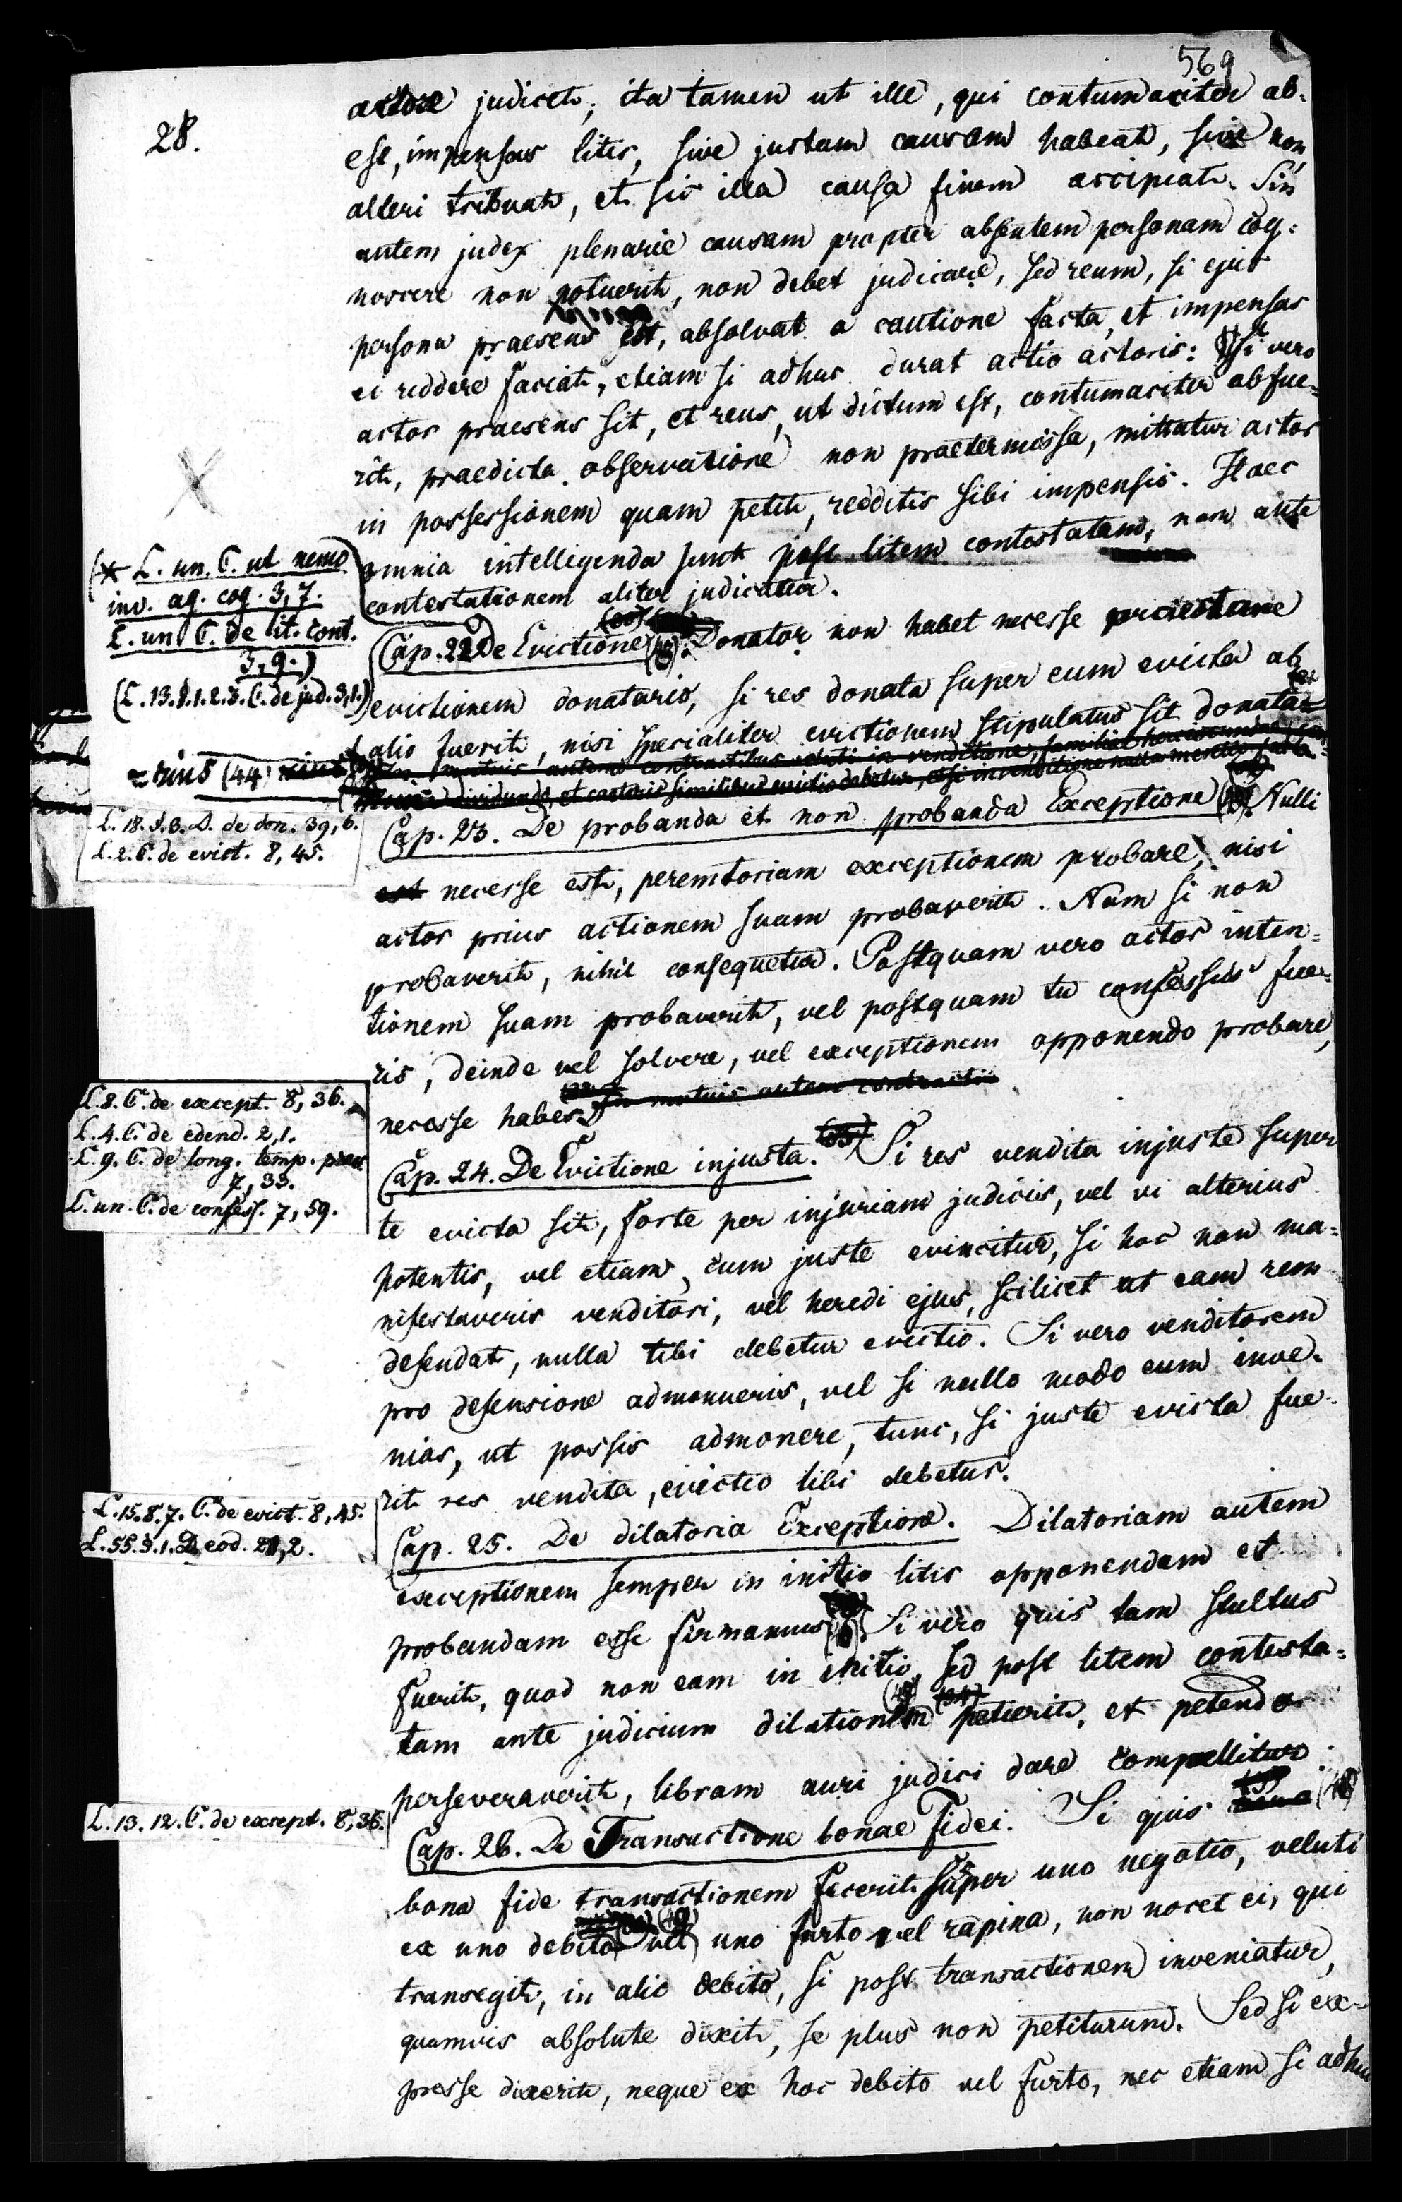 569
28.
actore judicet; ita tamen ut ille, qui contumaciter ab-
est, impensas litis, sive justam causam habeat, sive non,
alteri tribuat, et sic illa causa finem accipiat. Sin
autem judex plenarie causam propter absentem personam cog-
noscere non potuerit, non debet judicare, sed reum, si ejus
persona praesens est, absolvat a cautione facta, et impensas
ei reddere faciat, etiam si adhuc durat actio actoris: Si vero
actor praesens sit, et reus, ut dictum est, contumaciter abfue-
rit, praedicta observatione non praetermissa, mittatur actor
in possessionem quam petit, redditis sibi impensis. Haec
omnia intelligenda sunt post litem contestatam, nam ante
contestationem aliter judicatur.
(* L. un. C. ut nemo
inv. ag. cog. 3, 7.
L. un C. de lit. cont.
3, 9.)
(L. 13. §. 1. 2. 3. C. de jud. 3, 1.)
Cap. 22. De Evictione. Donator non habet necesse praestare
evictionem donatario, si res donata super eum evicta ab
alio fuerit, nisi specialiter evictionem stipulatus sit donata-
= rius (44)
L. 18. §. 3. D. de don. 39, 6.
L. 2. C. de evict. 8, 45.
Cap. 23. De probanda et non probanda Exceptione. Nulli
est necesse est, peremtoriam exceptionem probare, nisi
actor prius actionem suam probaverit. Nam si non
probaverit, nihil consequetur. Postquam vero actor inten-
tionem suam probaverit, vel postquam tu confessus fue-
ris, deinde vel solvere, vel exceptionem opponendo probare,
necesse habes. In mutuis autem contractis
L. 8. C. de except. 8, 36.
L. 4. C. de edend. 2, 1.
L. 9. C. de long. temp. praes
7, 33.
L. un. C. de confess. 7, 59.
Cap. 24. De Evictione injusta. Si res vendita injuste super
te evicta sit, forte per injuriam judicis, vel vi alterius
potentis, vel etiam, cum juste evincitur, si hoc non ma-
nifestaveris venditori, vel heredi ejus, scilicet ut eam rem
defendat, nulla tibi debetur evictio. Si vero venditorem
pro defensione admonueris, vel si nullo modo eum inve-
nias, ut possis admonere, tunc, si juste evicta fue-
rit res vendita, evictio tibi debetur.
L. 15. 8. 7. C. de evict. 8, 45.
L. 55. §. 1. D. eod. 21, 2.
Cap. 25. De dilatoria Exceptione. Dilatoriam autem
exceptionem semper in initio litis opponendam et
probandam esse firmamus. Si vero quis tam stultus
fuerit, quod non eam in initio, sed post litem contesta-
tam ante judicium dilationem petierit, et petendo
perseveraverit, libram auri judici dare compellitur.
L. 13. 12. C. de except. 8, 36.
Cap. 26. De Transactione bonae Fidei. Si quis
bona fide transactionem fecerit super uno negotio, veluti
ex uno debito vel uno furto vel rapina, non nocet ei, qui
transegit, in alio debito, si post transactionem inveniatur,
quamvis absolute dixit, se plus non petiturum. Sed si ex-
presse dixerit, neque ex hoc debito vel furto, nec etiam si adhuc